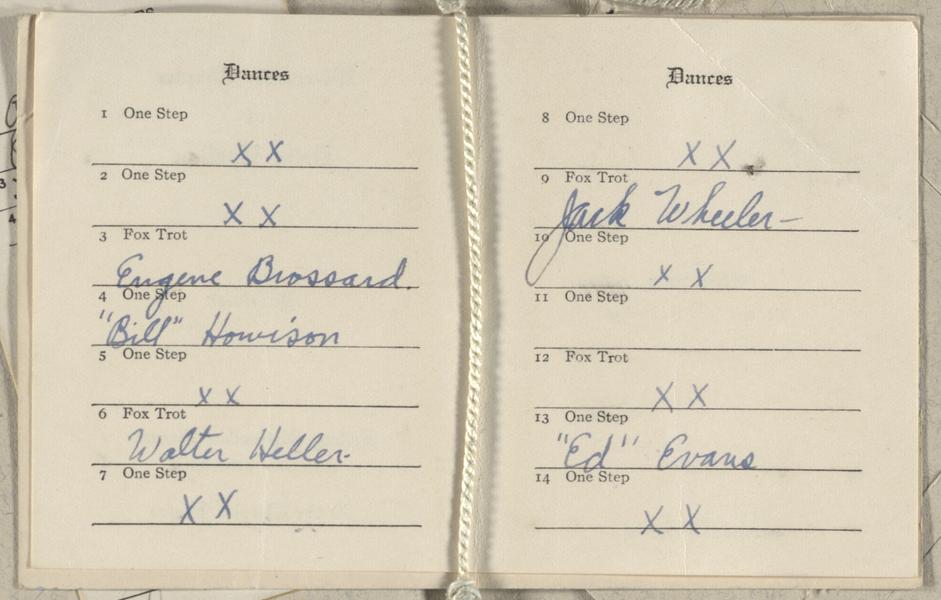 Dances
1 One Step
X X
2 One Step
X X
3 Fox Trot
Eugene Brossard.
4 One Step
"Bill" Howison
5 One Step
X X
6 Fox Trot
Walter Heller.
7 One Step
X X
Dances
8 One Step
X X
9 Fox Trot
Jack Wheeler—
10 One Step
X X
11 One Step
12 Fox Trot
X X
13 One Step
"Ed" Evans
14 One Step
X X